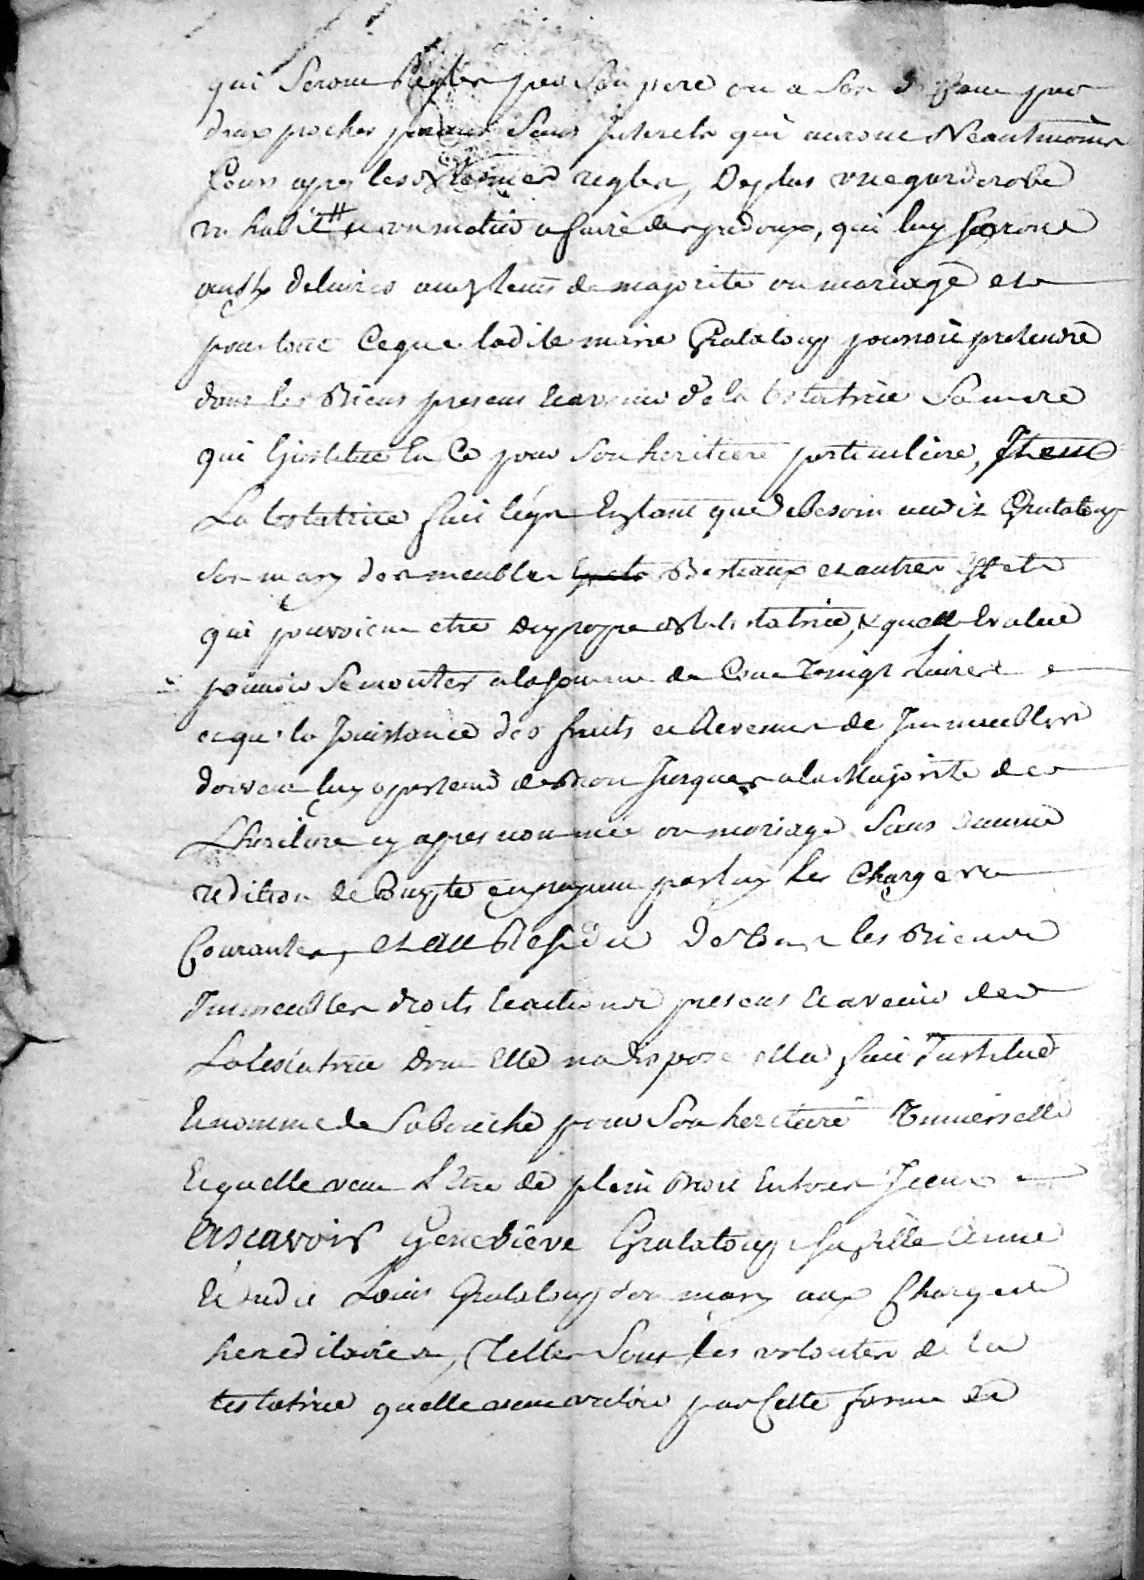 qui seront Reglés par son pere ou a son deffaut par
deux proches parans sans Interets qui auront Neantmoins
Cours apres les termes reglés, De plus une garderobe
un habit et un metier a faire des padoux, qui luy seront
aussy delivrés aux tems de majorité ou mariage et
pour tout Ceque ladite marie Grataloup pourroit pretendre
dans les Biens presens et avenir de la testatrice Sa mere
qui l'institue En Ce pour Son heritiere particuliere, Item
La testatrice fait légat En tant que de Besoin audit Grataloup
son mary des meubles Bestiaux et autres effets
qui pouvoient etre du propre de la testatrice, & quelle Evalue
pouvoir Se monter a la somme de Cent vingt Livres
et que la Jouissance des fruits et Revenus de Immeubles
doivent luy apartenir de droit Jusques a la Majorité de
L'heritiere cy apres nommée ou mariage Sans aucune
redition de Compte en payant par luy les Charges
Courantes, et au Residu de tous les Biens
Immeubles droits et actions presens et avenir de
La testatrice dont Elle na dispozé elle a fait Institué
et nommé de Sa Bouche pour Son heritiere Universelle
et quelle veut L'Etre de plein Droit En tous Iceux
Ascavoir Geneviève Grataloup sa fille
et dudit Louis Grataloup son mary aux Charges
hereditaires, Telles Sont les volontés de la
testatrice quelle veut valoir par Cette forme de